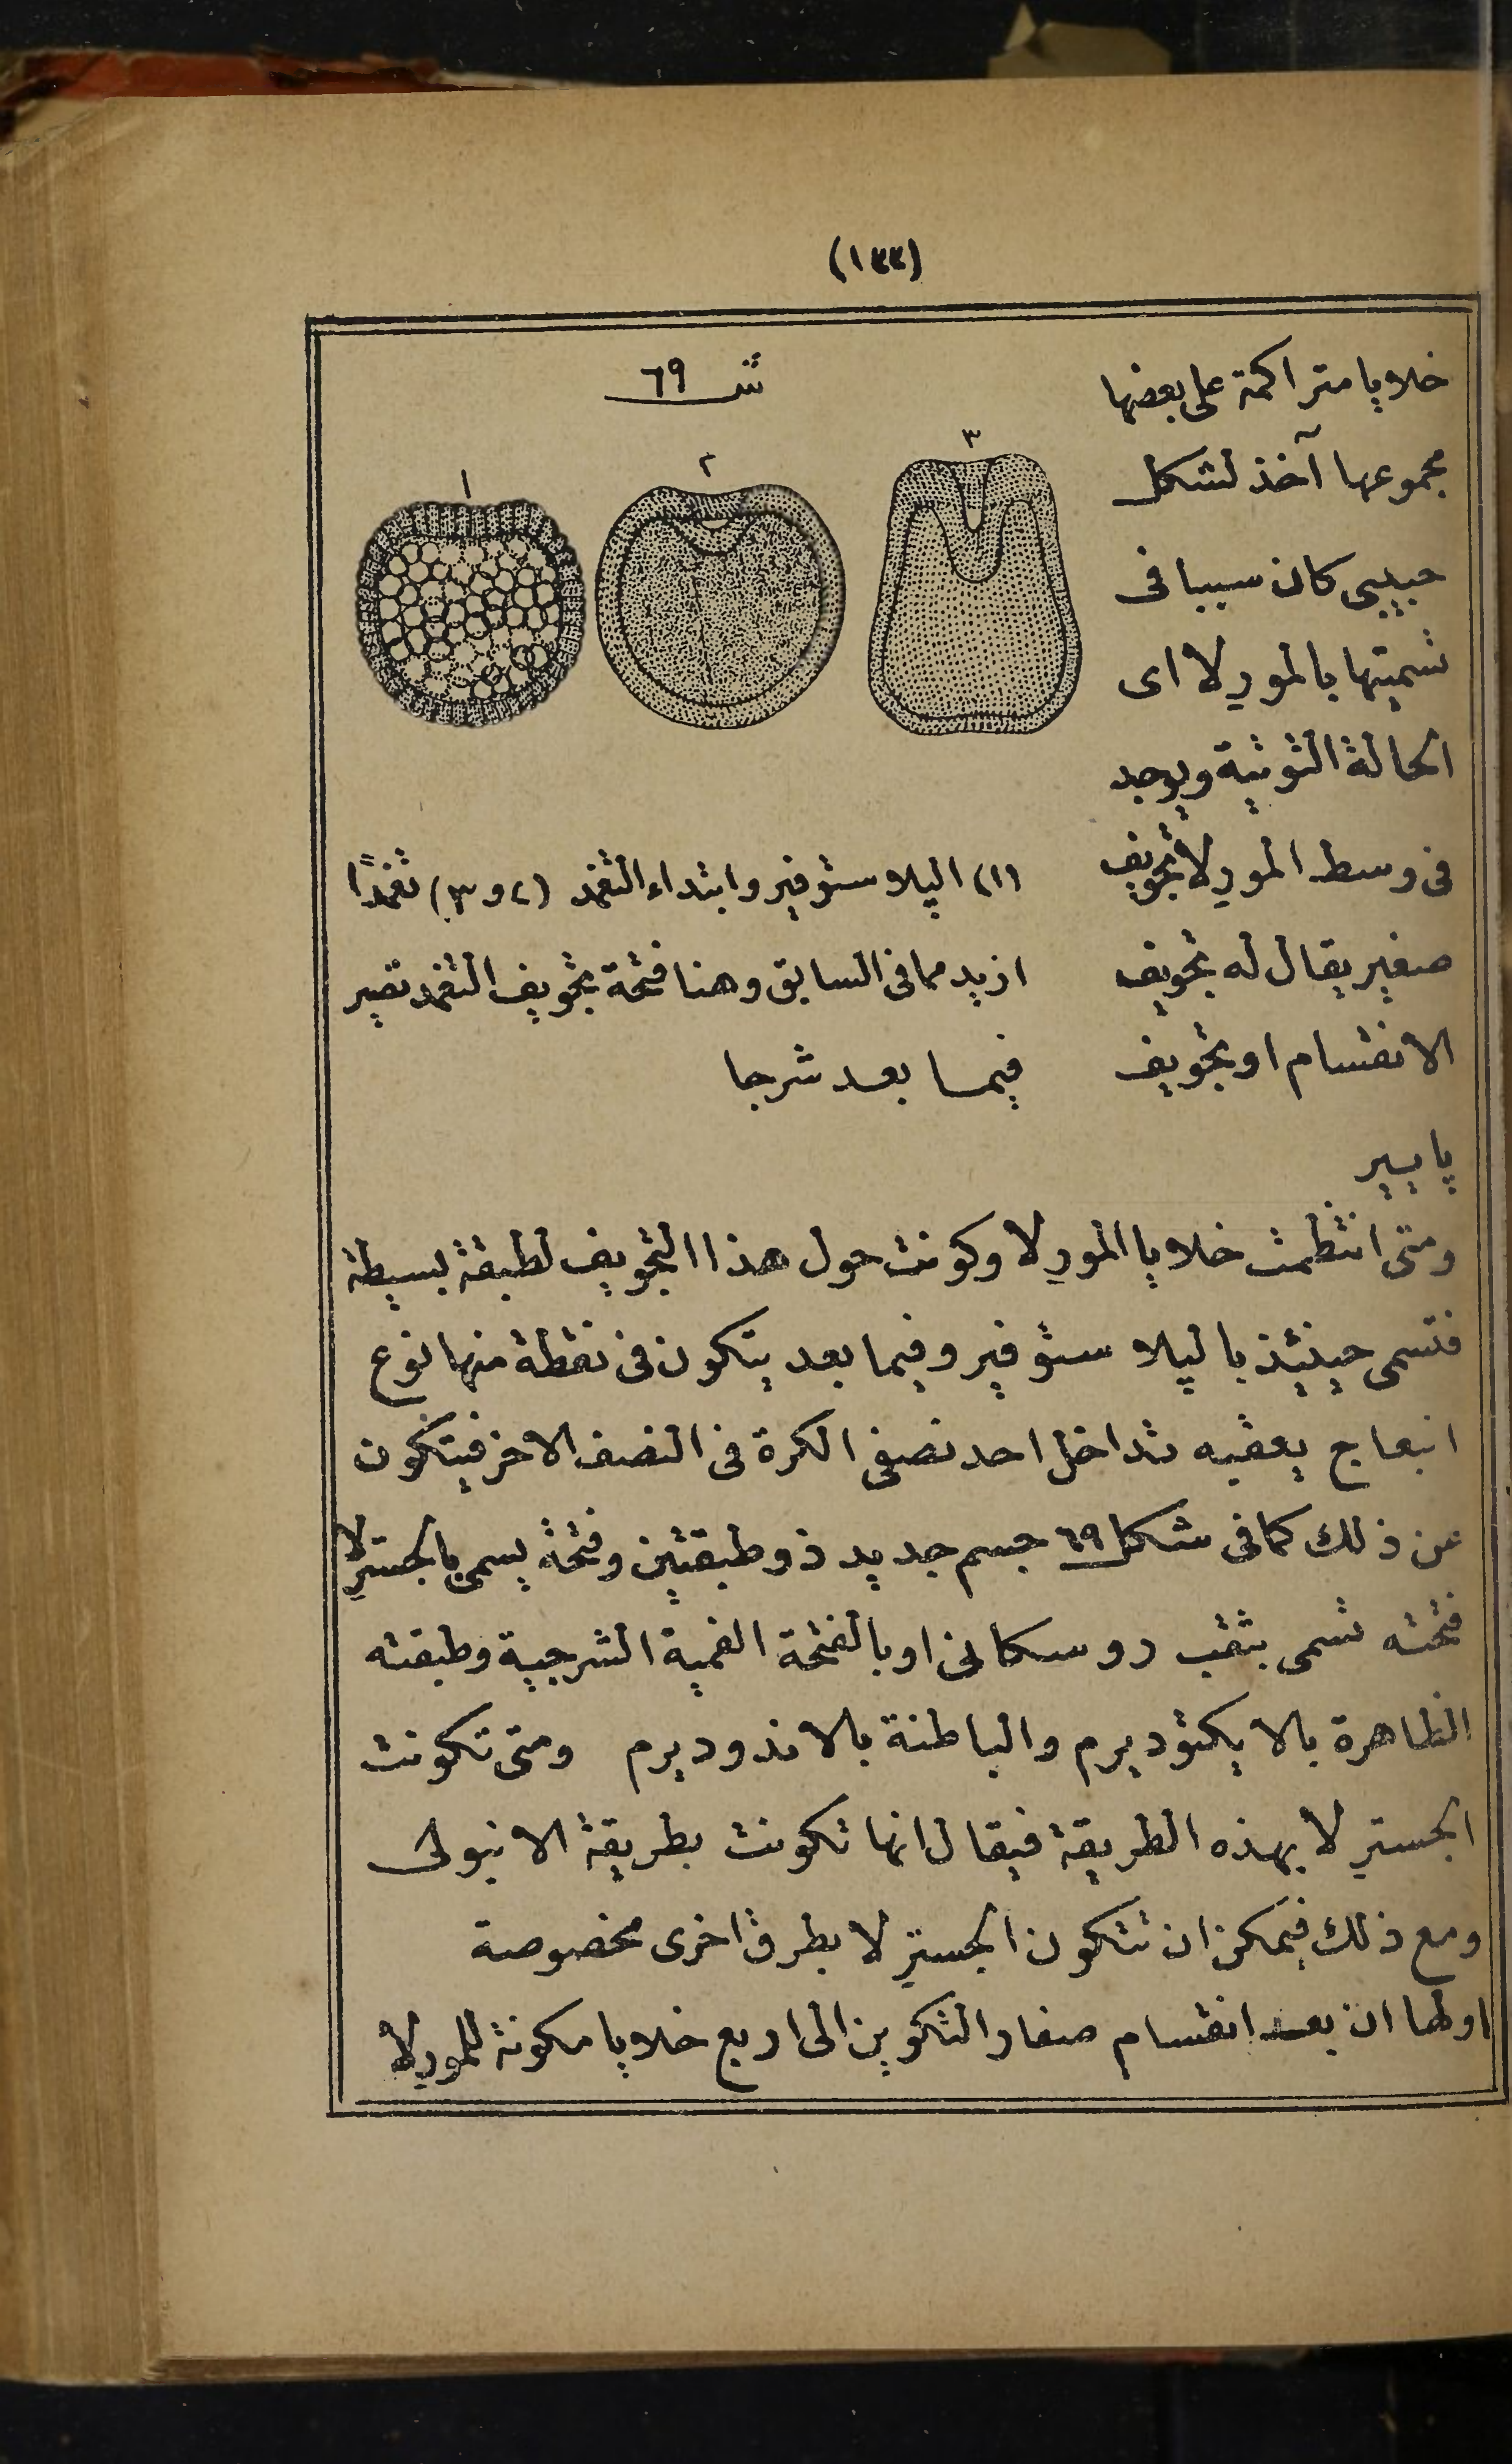 (١٣٣)
خلايا متراكمة على بعضها
مجموعها آخذ لشكل
حبيبى كان سببا فى
تسميتها بالمورلا اى
الحالة التوتية ويوجد
فى وسط المورلا تجويف
صغير يقال له تجويف
الانقسام او تجويف
پايير
شـ ٦٩
٣
٢
١
(١) البلاستوفير وابتداء التغمد (٢ و ٣) تغمدًا
ازيد مما فى السابق وهنا فتحة تجويف التغمد تصير
فيما بعد شرجا
ومتى انتظمت خلايا المورلا وكونت حول هذا التجويف لطبقة بسيطة
فتسمى حينئذ بالبلاستوفير وفيما بعد يتكون فى نقطة منها نوع
انبعاج يعقبه تداخل احد نصفى الكرة فى النصف الاخر فيتكون
عن ذلك كما فى شكل ٦٩ جسم جديد ذو طبقتين وفتحة يسمى بالجسترلا
فتحته تسمى بثقب روسكانى او بالفتحة الفمية الشرجية وطبقته
الظاهرة بالايكتوديرم والباطنة بالاندوديرم ومتى تكونت
الجسترلا بهذه الطريقة فيقال انها تكونت بطريقة الانبولى
ومع ذلك فيمكن ان تتكون الجسترلا بطرق اخرى مخصوصة
اولها ان بعد انقسام صفار التكوين الى اربع خلايا مكونة للمورلا